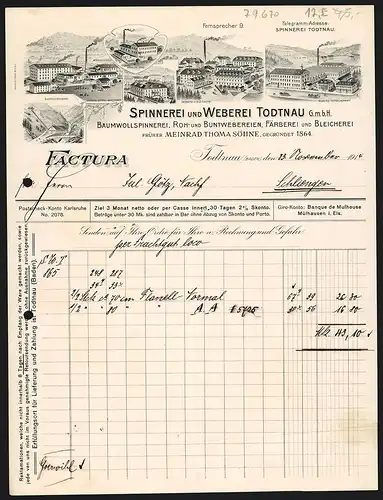 79.670
12,£
Fernsprecher 9.
Telegramm-Adresse:
SPINNEREI TODTNAU.
SPINNEREI UND WEBEREI TODTNAU G.m.b.H.
BAUMWOLLSPINNEREI, ROH- UND BUNTWEBEREIEN, FÄRBEREI UND BLEICHEREI
FRÜHER MEINRAD THOMA SÖHNE, GEGRÜNDET 1864.
FACTURA
Todtnau (BADEN), den 23. November 1914
Herrn Jul. Götz, Nachf. Schliengen
Postscheck-Konto Karlsruhe No. 2078.
Ziel 3 Monat netto oder per Casse innert 30 Tagen 2% Skonto.
Beträge unter 30 Mk. sind zahlbar in Bar ohne Abzug von Skonto und Porto.
Giro-Konto: Banque de Mulhouse Mülhausen i. Els.
Senden auf Ihre Ordre für Ihre a. Rechnung und Gefahr
per Frachtgut loco
165 248 207
2/2 Stck 70 cm Flanell Normal 39 26 80
1/2 " 80 " " A A 56 16 80
43,10
Reklamationen, welche nicht innerhalb 8 Tagen nach Empfang der Ware erhoben werden, sowie
jede von uns nicht im Voraus genehmigte Retoursendung werden ohne Ausnahme zurückgewiesen.
Erfüllungsort für Lieferung und Zahlung ist Todtnau (Baden).